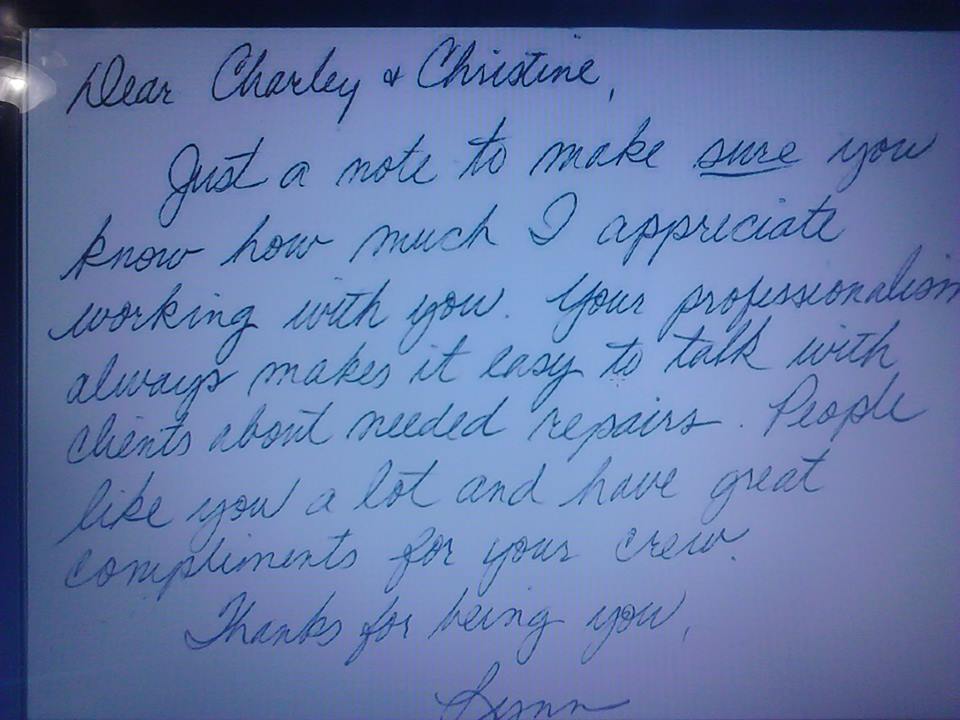 Dear Charley & Christine,
Just a note to make sure you
know how much I appreciate
working with you. Your professionalism
always makes it easy to talk with
clients about needed repairs. People
like you a lot and have great
compliments for your crew.
Thanks for being you,
Lynn